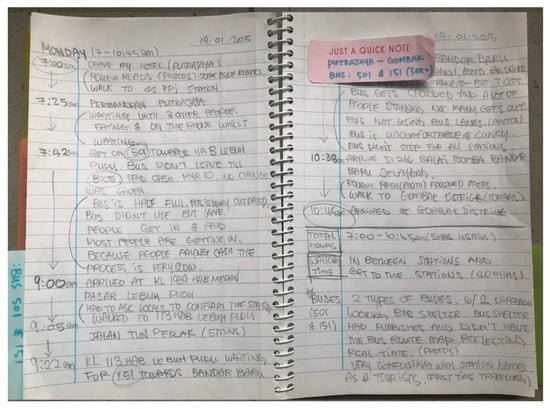 19.01.2015
MONDAY (7-10:45am)
7:00am LEAVE MY HOTEL (PUTRAJAYA)
ROUGH ROADS (PHOTOS) SOME BIKE
WALK TO STATION
7:25am PERBANDARAN PUTRAJAYA
WAITING WITH OTHER PEOPLE.
EATING & ON THE PHONE WHILST
WAITING.
7:42am GET ON (501) TOWARDS HAB LEBUH
PUDU. BUS DIDN'T LEAVE TILL
PAID CASH MYR10. NO CHANGE
WAS GIVEN.
BUS IS HALF FULL.
BUS DIDNT USE BUS LANE.
PEOPLE GET IN & PAID
MOST PEOPLE ARE GETTING IN.
BECAUSE PEOPLE PAYING CASH THE
PROCESS IS VERY SLOW.
9:00am ARRIVED AT KL MEDAN
PASAR LEBUH PUDU
HAD TO ASK LOCALS TO CONFIRM THE
WALKED TO 113 HAB LEBUH PUDU
9:05am JALAN TUN PERAK (5MINS)
9:22am KL 113 HAB LEBUH PUDU WAITING
FOR 151 TOWARDS BANDAR BARU
BUS 501 & 151
19.01.2015
JUST A QUICK NOTE:
PUTRAJAYA - GOMBAK
BUS: 501 & 151
BANDAR BARU
BUS GETS CROWDED AND A LOT OF
PEOPLE STANDING NOT MANY GETS OUT.
BUS NOT USING BUS LANES. (PHOTOS)
BUS IS UNCOMFORTABLE & CLUNKY.
BUS DONT STOP FOR ALL STATIONS.
10:38am ARRIVE BALAI BOMBA BANDAR
BARU SELAYANG.
ROUGH PATH (PHOTO) FOLLOWED OTHERS.
WALK TO GOMBAK DISTRICT
10:45am ARRIVED AT GOMBAK DISTRICT
TOTAL HOURS 7:00-10:45am (3HRS 45min)
WALKING TIME IN BETWEEN STATIONS AND
GET TO THE STATIONS
BUSES (501 & 151) 2 TYPES OF BUSES. W/ 2 DIFFERENT
LOOKING BUS SHELTER. BUS SHELTER
HAD RUBBISHES AND DIDN'T HAVE
THE BUS ROUTE MAP. REFLECTING
REAL-TIME. (PHOTOS)
VERY CONFUSING WITH STATION NAMES
AS A TOURISTS. (FIRST TIME TRAVELLERS)